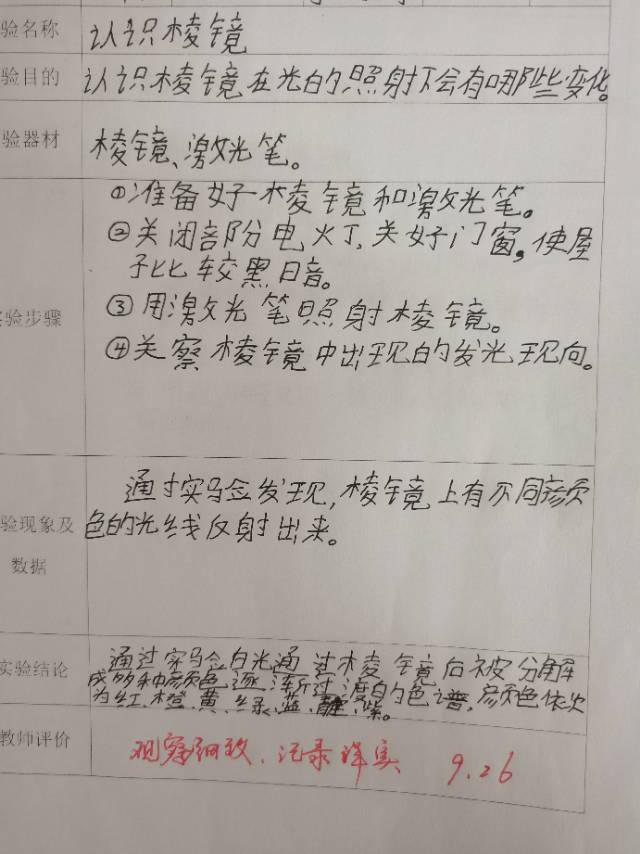 验名称 认识棱镜
验目的 认识棱镜在光的照射下会有哪些变化。
验器材 棱镜、激光笔。
①准备好棱镜和激光笔。
②关闭部分电灯,关好门窗,使屋
子比较黑暗。
实验步骤 ③用激光笔照射棱镜。
④关察棱镜中出现的发光现向。
通过实验发现,棱镜上有不同颜
验现象及 色的光线反射出来。
数据
实验结论 通过实验白光通过棱镜后被分解
成多种颜色逐渐过渡的色谱,颜色依次
为红、橙、黄、绿、蓝、靛、紫。
教师评价 观察细致、记录详实 9.26